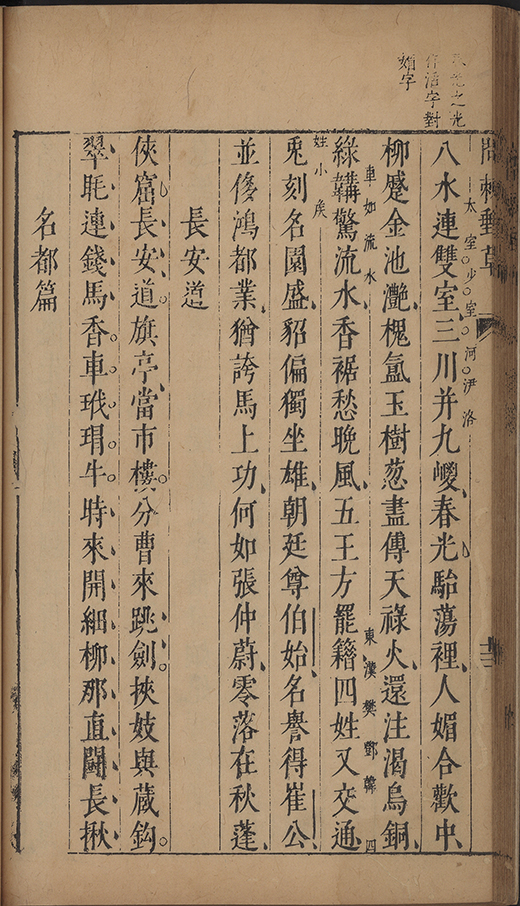 花之光
作活字對
媚字
太室少室河伊洛
八水連雙室三川并九嵕春光駘蕩裡人媚合歡中
柳蹙金池灔槐氳玉樹葱盡傳天祿火還注渴烏銅
車如流水
東漢樊鄧韓四
綠韝驚流水香裾愁晚風五王方罷籍四姓又交通
姓小矦
兎刻名園盛貂偏獨坐雄朝廷尊伯始名譽得崔公
並俊鴻都業猶誇馬上功何如張仲蔚零落在秋蓬
長安道
俠窟長安道旗亭當市樓分曹來跳劍挾妓與蔵鈎
翠毦連錢馬香車玳瑁牛時來開細柳那直鬪長楸
名都篇